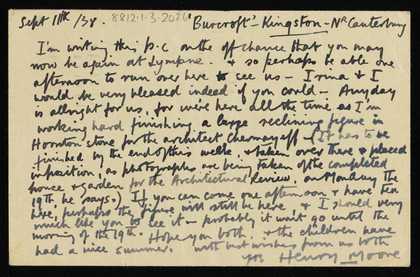 Sept 11th /38. 8812.1.3.2076 'Burcroft' - Kingston - Nr Canterbury
I'm writing this p.c on the off chance that you may
now be again at Lympne. & so perhaps be able one
afternoon to run over here to see us – Irina & I
would be very pleased indeed if you could – Any day
is allright for us, for we're here all the time as I'm
working hard finishing a large reclining figure in
Hornton stone for the architect Chermayeff – (It has to be
finished by the end of this week & taken over there & placed
in position, as photographs are being taken of the completed
house & garden for the Architectural Review on Monday the
19th he says.) If you can come one afternoon & have tea
here, perhaps the figure will still be here & I should very
much like you to see it – probably it wont go until the
morning of the 19th. Hope you both & the children have
had a nice summer. With best wishes from us both
Yrs Henry Moore